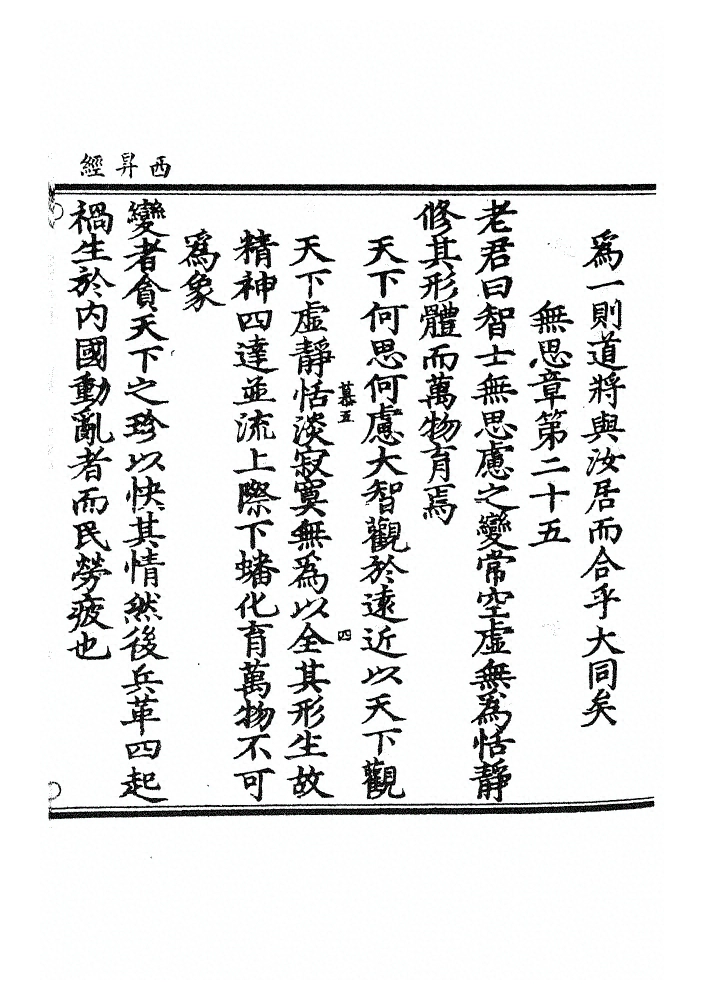 西昇經
為一則道將與汝居而合乎大同矣
無思章第二十五
老君曰智士無思慮之變常空虛無為恬靜
修其形體而萬物育焉
天下何思何慮大智觀於遠近以天下觀
慕五 四
天下虛靜恬淡寂寞無為以全其形生故
精神四達並流上際下蟠化育萬物不可
為象
變者貪天下之珍以快其情然後兵革四起
禍生於內國動亂者而民勞疲也